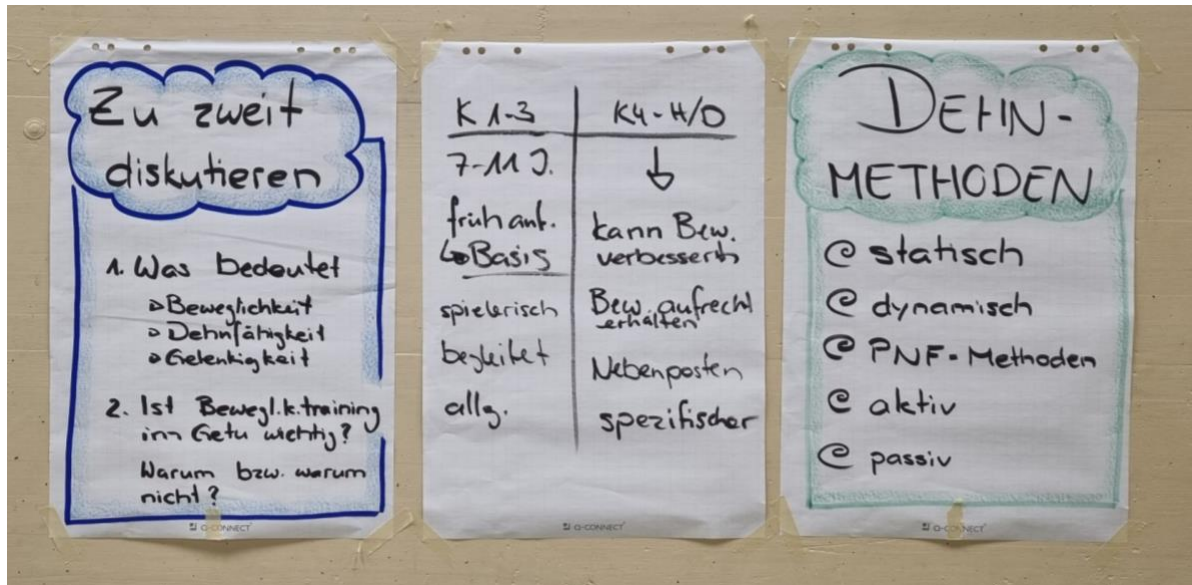 Zu zweit
diskutieren
1. Was bedeutet
Beweglichkeit
Dehnfähigkeit
Gelenkigkeit
2. Ist Bewegl.k.training
im Getu wichtig?
Warum bzw. warum
nicht?
Q-CONNECT
K 1-3
7-11 J.
früh anf.
↳ Basis
spielerisch
begleitet
allg.
K4-H/D
↓
kann Bew.
verbessern
Bew. aufrecht
erhalten
Nebenposten
spezifischer
Q-CONNECT
DEHN-
METHODEN
statisch
dynamisch
PNF-Methoden
aktiv
passiv
Q-CONNECT